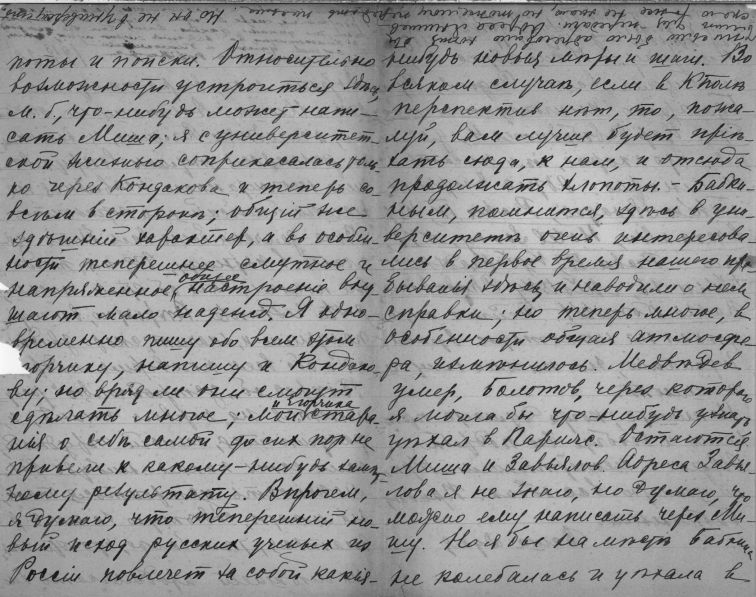 поты и поиски. Относительно
возможности устроиться здѣсь,
м. б., что-нибудь может напи-
сать Миша; я с университет-
ской жизнью соприкасалась толь-
ко через Кондакова и теперь со-
всѣм в сторонѣ; общій же
здѣшній характер, а въ особен-
ности теперешнее смутное и
напряженное общее настроеніе вну-
шают мало надежд. Я одно-
временно пишу обо всем этом
Егорчику, напишу и Кондако-
ву; но вряд ли они смогут
сдѣлать многое; мои и Егорчика стара-
нія о себѣ самой до сих пор не
привели к какому-нибудь
ному результату. Впрочем,
я думаю, что теперешній но-
вый исход русских ученых из
Россіи повлечет за собой какія-
нибудь новыя мѣры и шаги. Во
всяком случаѣ, если в К-полѣ
перспектив нѣт, то, пожа-
луй, вам лучше будет пріѣ-
хать сюда, к нам, и отсюда
продолжать хлопоты. - Бабки-
ным, помнится, здѣсь в уни-
верситетѣ очень интересова-
лись в первое время нашего пре-
быванія здѣсь и наводили о нем
справки; но теперь многое, в
особенности общая атмосфе-
ра, измѣнилось. Медвѣдев
умер, Болотов, через котораго
я могла бы что-нибудь узнать
уѣхал в Париж. Остаются
Миша и Завьялов. Адреса Завья-
лова я не знаю, но думаю, что
можно ему написать через Ми-
шу. Но я бы на мѣстѣ Бабкина
не колебалась и уѣхала в